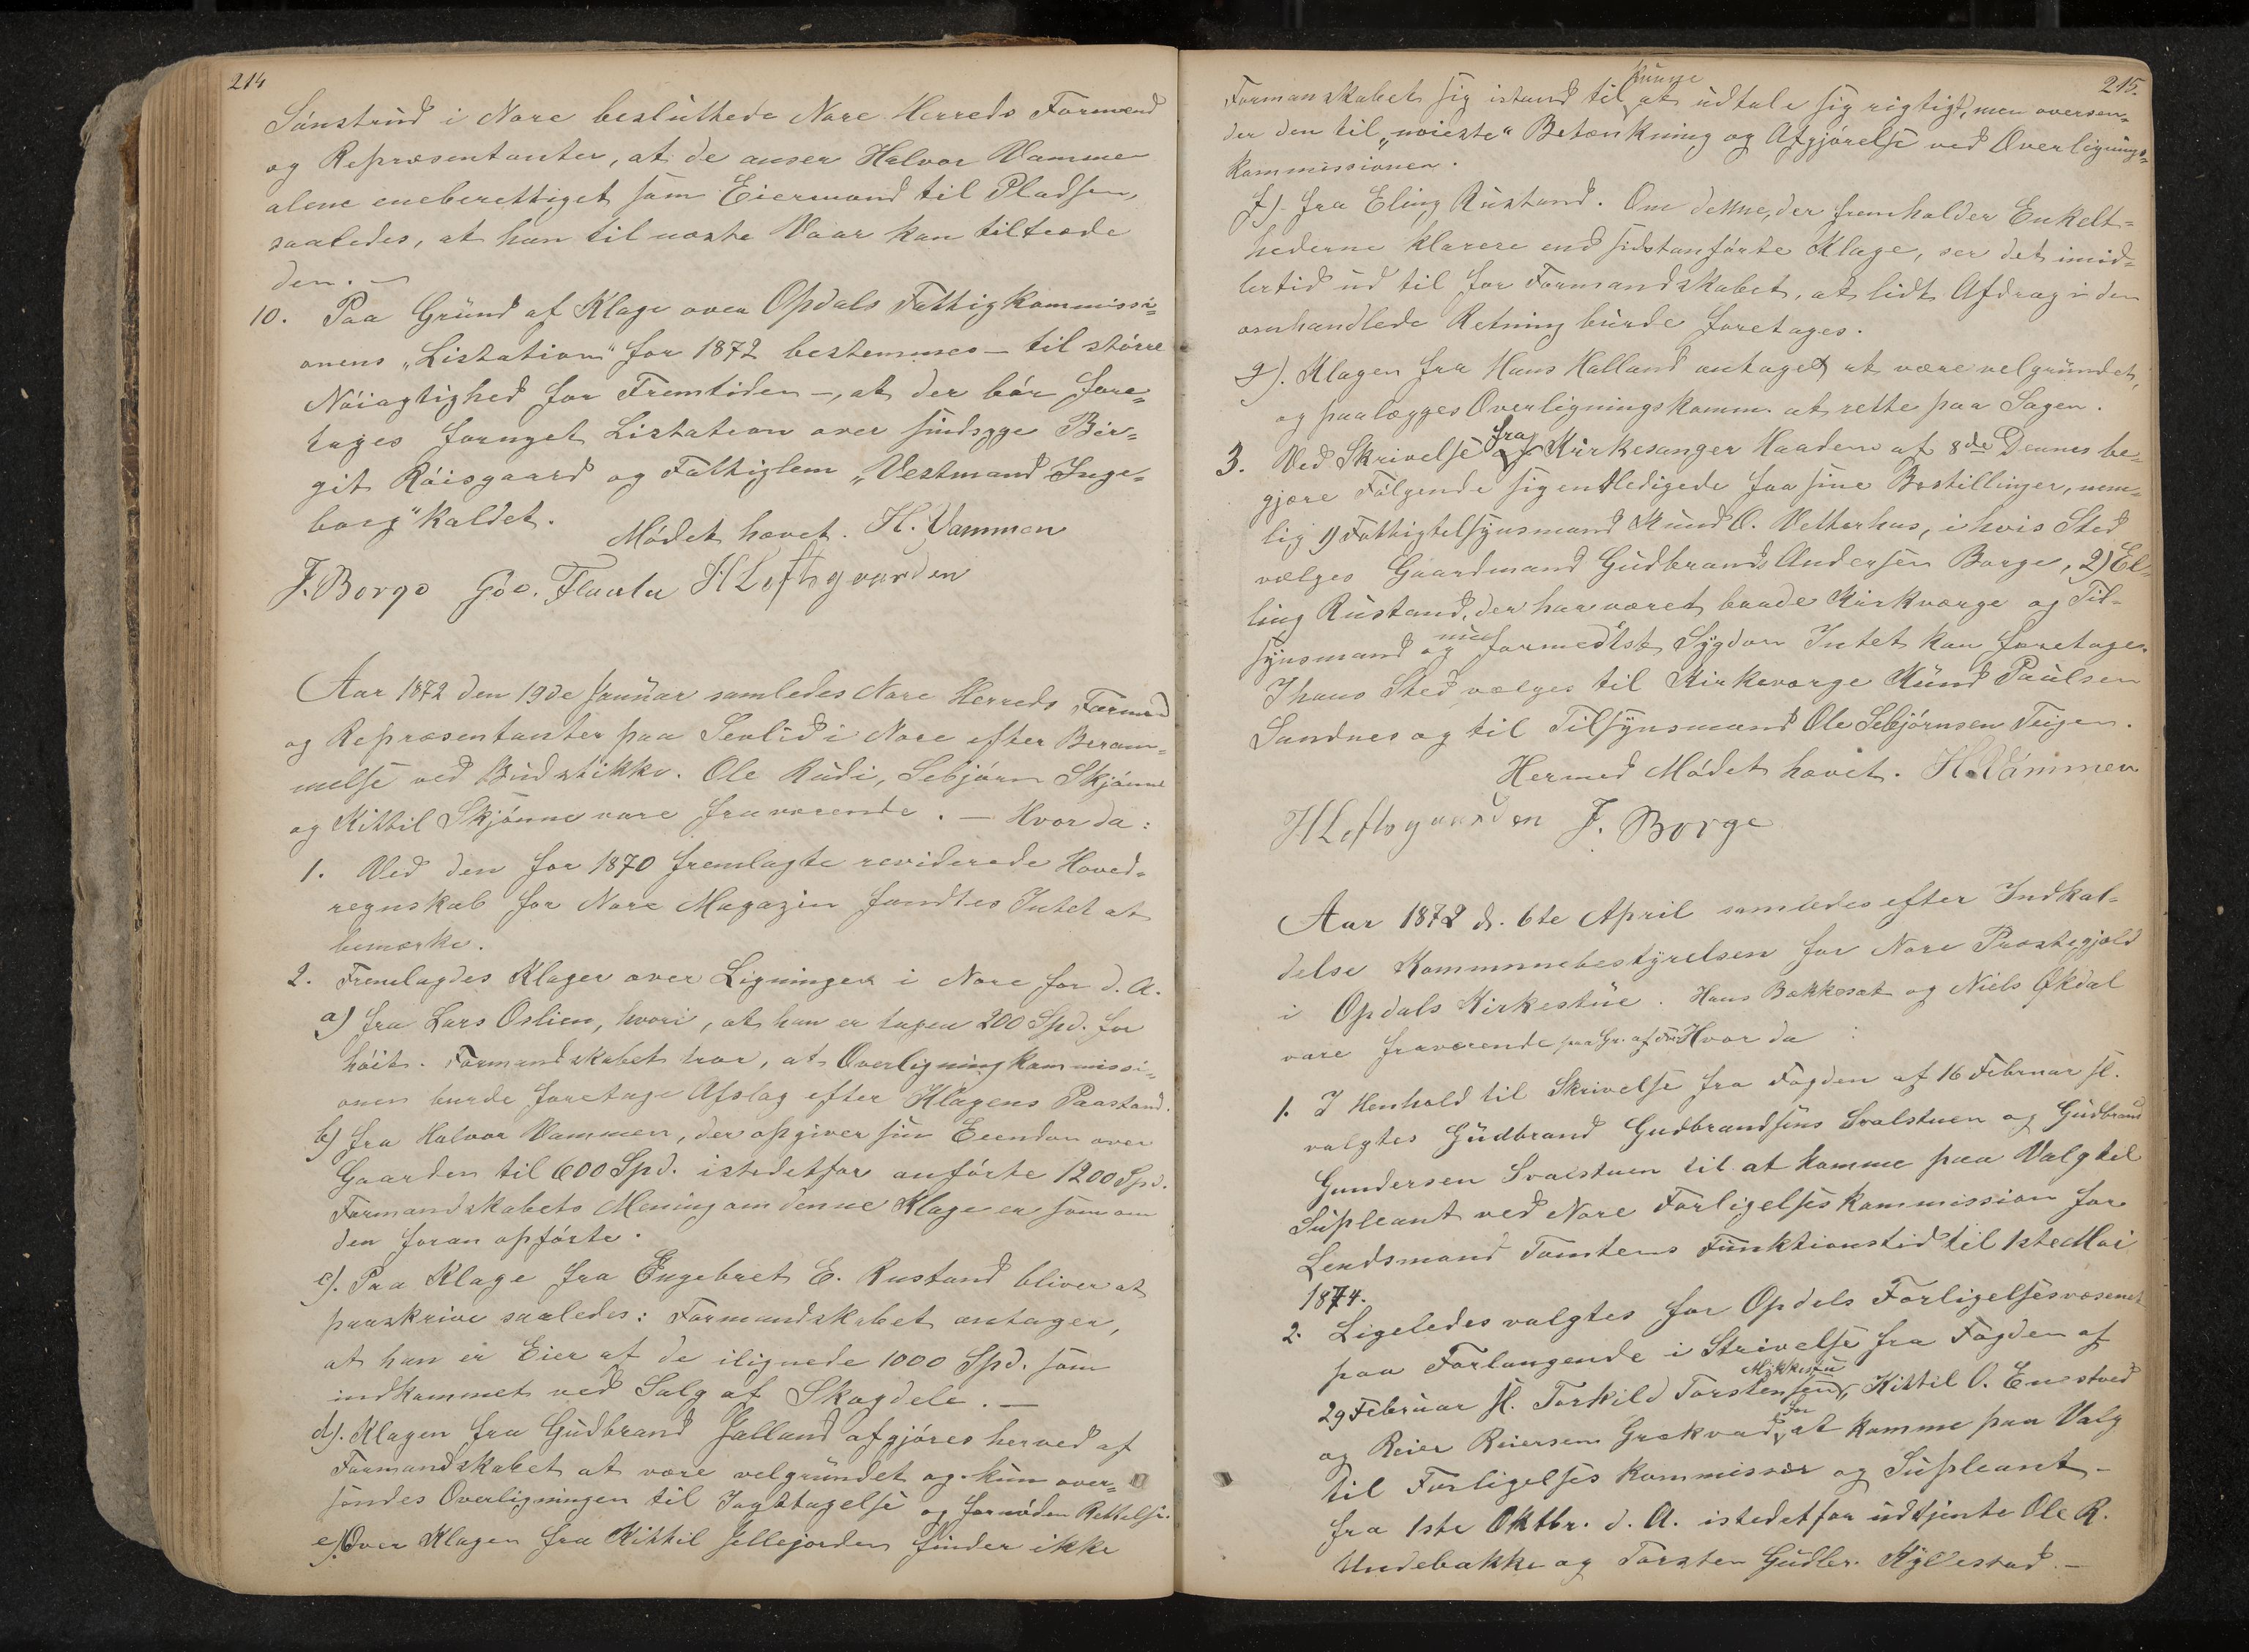 214
Sønstrud i Nore besluttede Nore Herreds Formænd
og Repræsentanter, at de anser Halvor Vammen
alene eneberettiget som Eiermand til Pladsen,
saaledes, at han til næste Vaar kan tiltræde
den. —
10. Paa Grund af Klage over Opdals Fattigkommissi=
onens „Listation" for 1872 bestemmes — til større
Nøiagtighed for Fremtiden —, at der bør fore=
tages fornyet Listation over sindsyge Bir=
git Røisgaard og Fattiglem „Vestmand Inge=
borg" kaldet.
Mødet hævet. H. Vammen
F. Borge Flaata H Loftsgaarden
Aar 1872 den 19de Januar samledes Nore Herreds Formænd
og Repræsentanter paa Sevlid i Nore efter Beram=
melse ved Budstikke. Ole Rudi, Sebjørn Skjønne
og Kittil Skjønne vare fraværende. — Hvor da:
1. Ved den for 1870 fremlagte reviderede Hoved=
regnskab for Nore Magazin fandtes Intet at
bemærke.
2. Fremlagdes Klager over Ligningen i Nore for d. A.
a) fra Lars Oslien, hvori, at han er tagen 200 Spd. for
høit. Formandskabet tror, at Overligningkommissi=
onen burde foretage Afslag efter Klagens Paastand.
b) fra Halvor Vammen, der opgiver sin Eiendom over
Gaarden til 600 Spd. istedetfor anførte 1200 Spd.
Formandskabets Mening om denne Klage er som om
den foran opførte.
c). Paa Klage fra Engebret E. Rustand bliver at
paaskrive saaledes: Formandskabet antager,
at han er Eier af de ilignede 1000 Spd. som
indkommet ved Salg af Skogdele. —
d). Klagen fra Gudbrand Jalland afgjøres herved af
Formandskabet at være velgrundet og kun over=
sendes Overligningen til Iagttagelse og fornøden Rettelse.
e) Over Klagen fra Kittil Jellejorden finder ikke
215.
Formanskabet sig istand til at kunne udtale sig rigtigt, men oversen=
der den til „nøieste" Betænkning og Afgjørelse ved Overlignings=
kommissionen.
f). fra Eling Rustand. Om denne, der fremholder Enkelt=
hederne klarere end sidstanførte Klage, ser det imid=
lertid ud til for Formandskabet, at lidt Afdrag i den
omhandlede Retning burde foretages.
g). Klagen fra Hans Halland antages at være velgrundet,
og paalægges Overligningskomm. at rette paa Sagen.
3. Ved Skrivelse fra Kirkesanger Haadem af 8de Dennes be=
gjære Følgende sig entledigede fra sine Bestillinger, nem=
lig 1) Fattigtilsynsmand Knud O. Vetterhus, i hvis Sted
vælges Gaardmand Gudbrand Andersen Borge, 2) El=
ling Rustand, der har været baade Kirkværge og Til=
synsmand og nu formedlst Sygdom Intet kan foretage.
I hans Sted vælges til Kirkeværge Knud Paulsen
Sandnes og til Tilsynsmand Ole Sebjørnsen Teigen.
Hermed Mødet hævet. H. Vammen
H Loftsgaarden F. Borge
Aar 1872 d. 6te April samledes efter Indkal=
delse Kommunebestyrelsen for Nore Præstegjæld
i Opdals Kirkestue. Hans Bækkesæt og Niels Økdal
vare fraværende paa Gr. af Hvor da:
1. I Henhold til Skrivelse fra Fogden af 16 Februar sl.
valgtes Gudbrand Gudbrandsens Svalstuen og Gudbrand
Gundersen Svalstuen til at komme paa Valg til
Supleant ved Nore Forligelseskommission for
Lendsmand Tomtens Funktionstid til 1ste Mai
1874.
2. Ligeledes valgtes for Opdals Forligelsesvæsenet
paa Forlangende i Skrivelse fra Fogden af
29 Februar sl. Torkild Torstensen Mykkestu, Kittil O. Enestved
og Reier Reiersen Grækvad for at komme paa Valg
til Forligelses kommissær og Supleant —
fra 1ste Oktbr. d. A. istedetfor udtjente Ole R.
Undebakke og Torsten Gudbr. Kyllestad. —